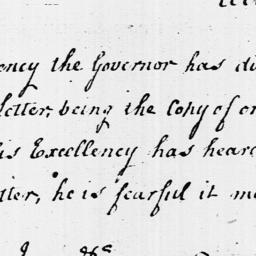 ency the Governor has di
letter, being the Copy of on
is Excellency has hear
tter, he is fearful it m